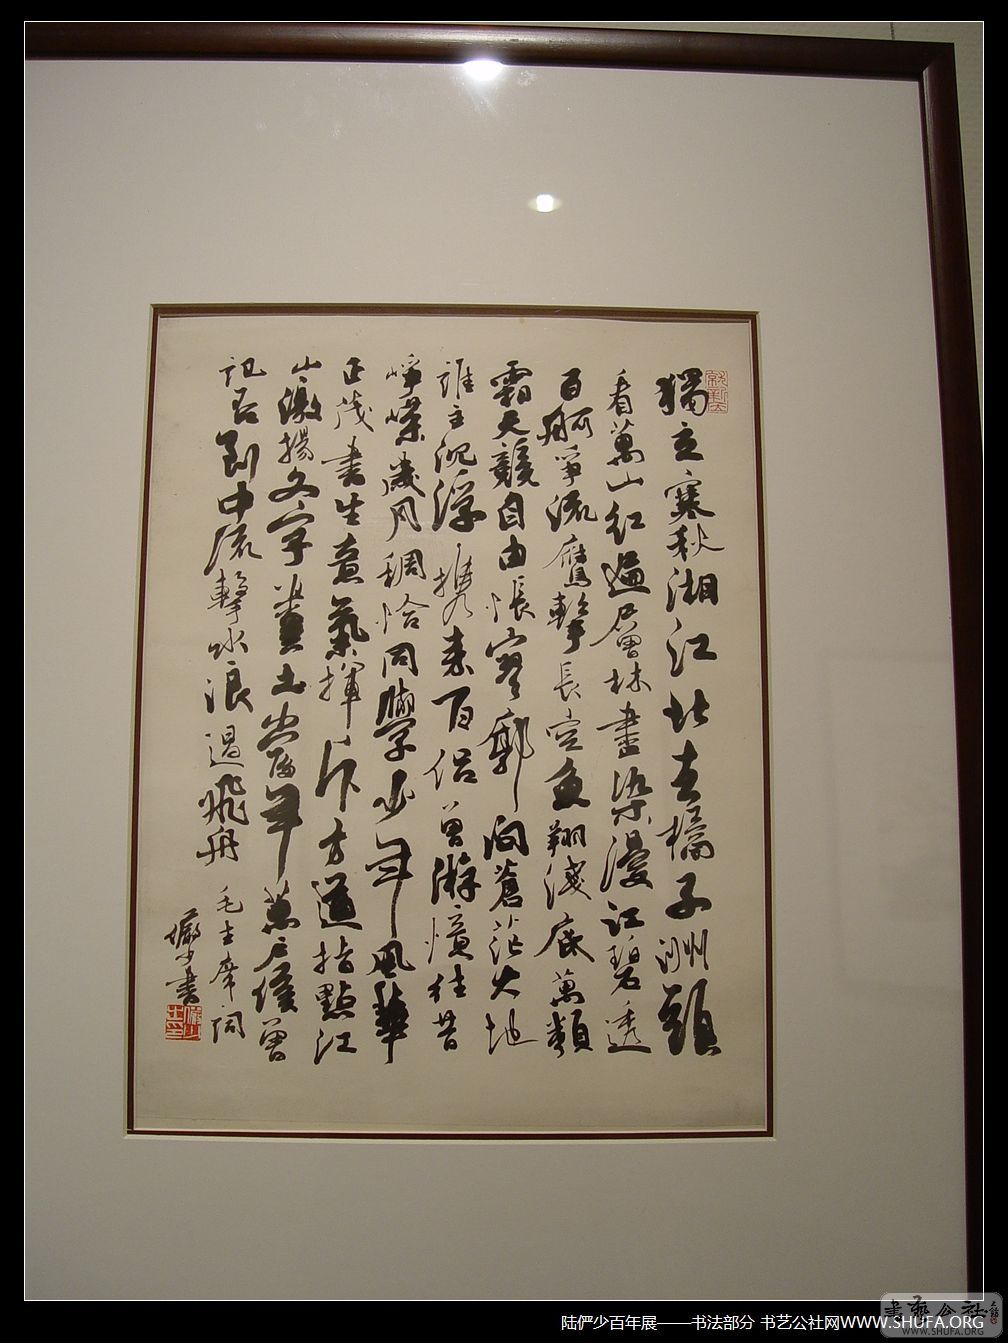 獨立寒秋湘江北去橘子洲頭
看萬山紅遍層林盡染漫江碧透
百舸爭流鷹擊長空魚翔淺底萬類
霜天競自由悵寥廓問蒼茫大地
誰主沉浮携來百侣曾游憶往昔
崢嶸歲月稠恰同學少年風華
正茂書生意氣揮斥方遒指點江
山激揚文字糞土當年萬户侯曾
記否到中流擊水浪遏飛舟 毛主席詞
儼少書
书艺公社
WWW.SHUFA.ORG
陆俨少百年展——书法部分 书艺公社网WWW.SHUFA.ORG